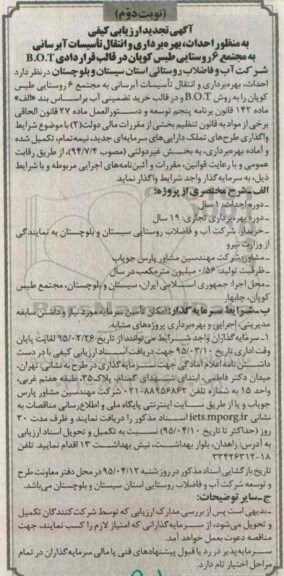 (نوبت دوم)
آگهی تجدید ارزیابی کیفی
به منظور احداث، بهره‌برداری و انتقال تأسیسات آبرسانی
به مجتمع ۶ روستایی طیس کوپان در قالب قراردادی B.O.T
شرکت آب و فاضلاب روستایی استان سیستان و بلوچستان در نظر دارد
احداث، بهره‌برداری و انتقال تأسیسات آبرسانی به مجتمع ۶ روستایی طیس
کوپان را به روش B.O.T و در قالب خرید تضمینی آب براساس بند «الف»
ماده ۱۴۲ قانون برنامه پنجم توسعه و دستورالعمل ماده ۲۷ قانون الحاقی
برخی از مواد به قانون تنظیم بخشی از مقررات مالی دولت(۲) با موضوع شرایط
واگذاری طرح‌های تملک دارایی‌های سرمایه‌ای جدید، نیمه‌تمام، تکمیل شده
و آماده بهره‌برداری، به بخش غیردولتی (مصوب ۹۴/۷/۴)، از طریق رقابت
عمومی و با رعایت قوانین، مقررات و آئین‌نامه‌های اجرایی مربوطه و با شرایط
ذیل، به سرمایه‌گذار واجد شرایط واگذار نماید.
الف ـ شرح مختصری از پروژه:
ـ دوره احداث: ۱ سال
ـ دوره بهره‌برداری تجاری: ۱۹ سال
ـ خریدار: شرکت آب و فاضلاب روستایی سیستان و بلوچستان به نمایندگی
از وزارت نیرو
ـ مشاور: شرکت مهندسین مشاور پارس جویاب
ـ ظرفیت تولید: ۰/۵۶ میلیون مترمکعب در سال
ـ محل اجرا: جمهوری اسلامی ایران، سیستان و بلوچستان، مجتمع طیس
کوپان، چابهار
ب ـ شرایط سرمایه گذار: امکان تأمین سرمایه مورد نیاز و داشتن سابقه
مدیریتی، اجرایی و بهره‌برداری پروژه‌های مشابه.
۱ـ سرمایه‌گذاران واجد شرایط می‌توانند از تاریخ ۹۵/۰۲/۲۶ لغایت پایان
وقت اداری تاریخ ۹۵/۰۳/۱۰ جهت دریافت اسناد ارزیابی کیفی با در دست
داشتن نامه اعلام آمادگی جهت سرمایه‌گذاری در طرح به نشانی: تهران،
میدان دکتر فاطمی، ابتدای شهدای گمنام، پلاک ۳۵، طبقه هفتم غربی،
واحد ۱۵ به شماره تلفن ۸۸۹۵۶۸۶۲-۰۲۱ شرکت مهندسین مشاور پارس
جویاب و یا از طریق سایت اینترنتی پایگاه ملی و اطلاع‌رسانی مناقصات به
نشانی iets.mporg.ir اسناد مذکور را دریافت نمایند و ظرف مدت ۳۰
روز (حداکثر تا تاریخ ۹۵/۰۴/۱۰) نسبت به تکمیل و تحویل اسناد ارزیابی
به آدرس: زاهدان، بلوار بهداشت، نبش بهداشت ۱۳ اقدام نمایند. تلفن
۱۸-۳۳۴۲۶۳۱۲
تاریخ بازگشایی اسناد مذکور در روز شنبه ۹۵/۰۴/۱۲ در محل دفتر معاونت طرح و
توسعه شرکت آب و فاضلاب روستایی استان سیستان و بلوچستان می‌باشد.
ج ـ سایر توضیحات:
ـ بدیهی است پس از بررسی مدارک ارزیابی که توسط شرکت‌کنندگان تکمیل
و تحویل می‌شود، از سرمایه‌گذارانی که امتیاز لازم را کسب نمایند، جهت
مناقصه دعوت بعمل خواهد آمد.
ـ سرمایه‌پذیر در رد یا قبول پیشنهادهای فنی یا مالی سرمایه‌گذاران در تمام
مراحل اختیار تام دارد.